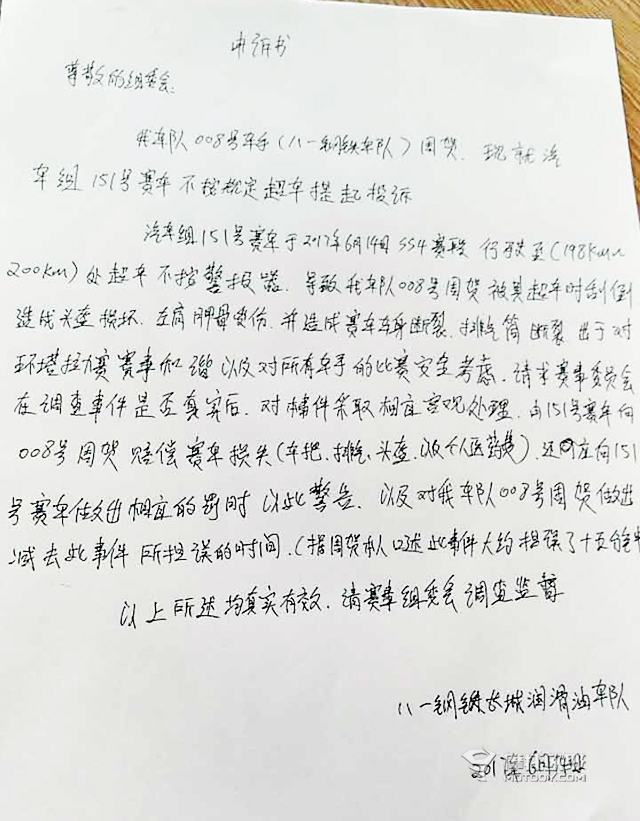 申诉书
尊敬的组委会：
我车队008号车手（八一钢铁车队）周贺．现就汽
车组151号赛车不按规定超车提起投诉
汽车组151号赛车于2017年6月14日SS4赛段 行驶至(198Km~
200Km）处超车不按警报器．导致我车队008号周贺被其超车时刮倒
造成头盔损坏．左肩胛骨受伤．并造成赛车车身断裂．排气筒断裂 出于对
环塔拉力赛赛事和谐以及对所有车手的比赛安全考虑．请求赛事委员会
在调查事件是否真实后．对本件采取相宜客观处理．由151号赛车向
008号周贺赔偿赛车损失(车把、排气、头盔、以及个人医药费）．还应向151
号赛车做出相宜的罚时 以此警告．以及对我车队008号周贺做出
减去此事件所担误的时间．（据周贺本人口述此事件大约担误了十五分钟
以上所述均真实有效．请赛事组委会调查监督
八一钢铁长城润滑油车队
2017年6月
MOTODY.COM